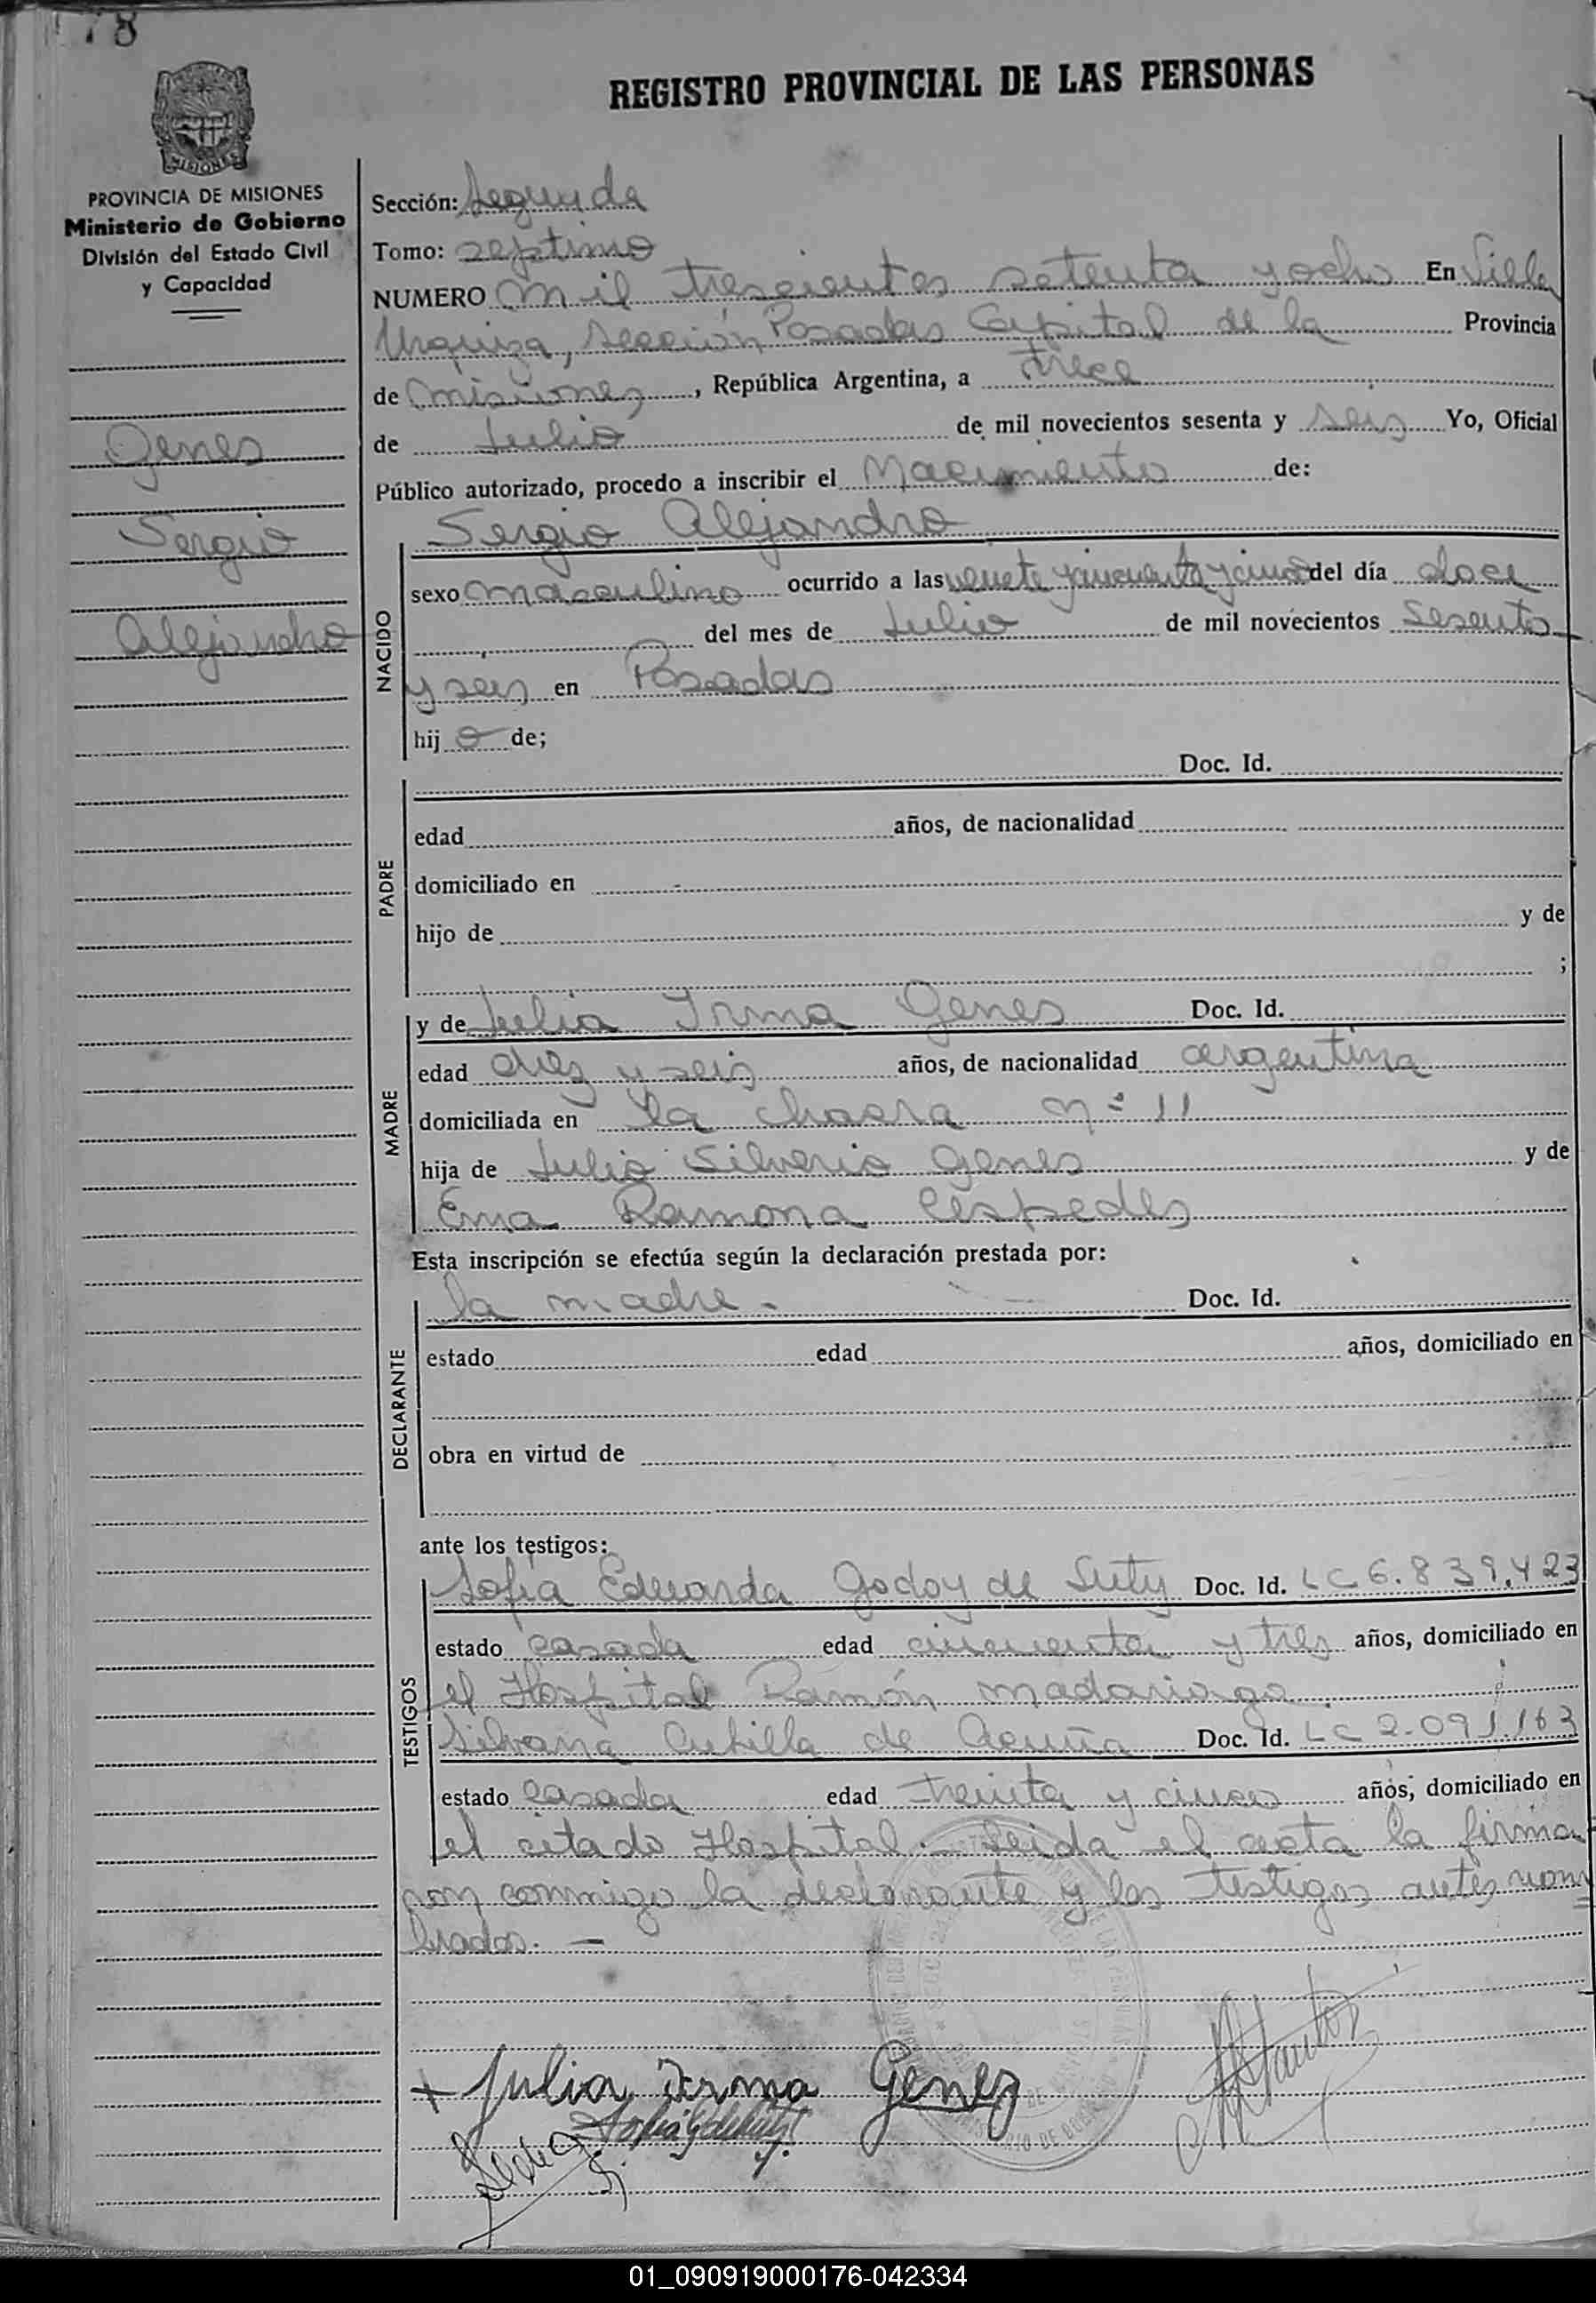 78
REGISTRO PROVINCIAL DE LAS PERSONAS
MISIONES
PROVINCIA DE MISIONES
Ministerio de Gobierno
División del Estado Civil
y Capacidad
Genes
Sergio
Alejandro
Sección: Segunda
Tomo: septimo
NUMERO Mil trescientos setenta y ocho En Villa
Urquiza, Sección Posadas Capital de la Provincia
de Misiones, República Argentina, a trece
de Julio de mil novecientos sesenta y seis Yo, Oficial
Público autorizado, procedo a inscribir el Nacimiento de:
NACIDO
Sergio Alejandro
sexo masculino ocurrido a las y cincuenta y cinco del día doce
del mes de Julio de mil novecientos sesenta
y seis en Posadas
hijo de;
PADRE
Doc. Id.
edad años, de nacionalidad
domiciliado en
hijo de y de
;
MADRE
y de Julia Irma Genes Doc. Id.
edad diez y seis años, de nacionalidad argentina
domiciliada en la chacra Nº 11
hija de Julio Silverio Genes y de
Ema Ramona Cespedes
Esta inscripción se efectúa según la declaración prestada por:
DECLARANTE
la madre.- Doc. Id.
estado edad años, domiciliado en
obra en virtud de
ante los testigos:
TESTIGOS
Sofia Eduarda Godoy de Suty Doc. Id. LC 6.839.423
estado casada edad cincuenta y tres años, domiciliado en
el Hospital Ramón Madariaga
Silvana de Acuña Doc. Id. LC 2.091.163
estado casada edad treinta y cinco años, domiciliado en
el citado Hospital.- Leida el acta la firma
con conmigo la declarante y los testigos antes nom
brados.-
+ Julia Irma Genez
01_090919000176-042334